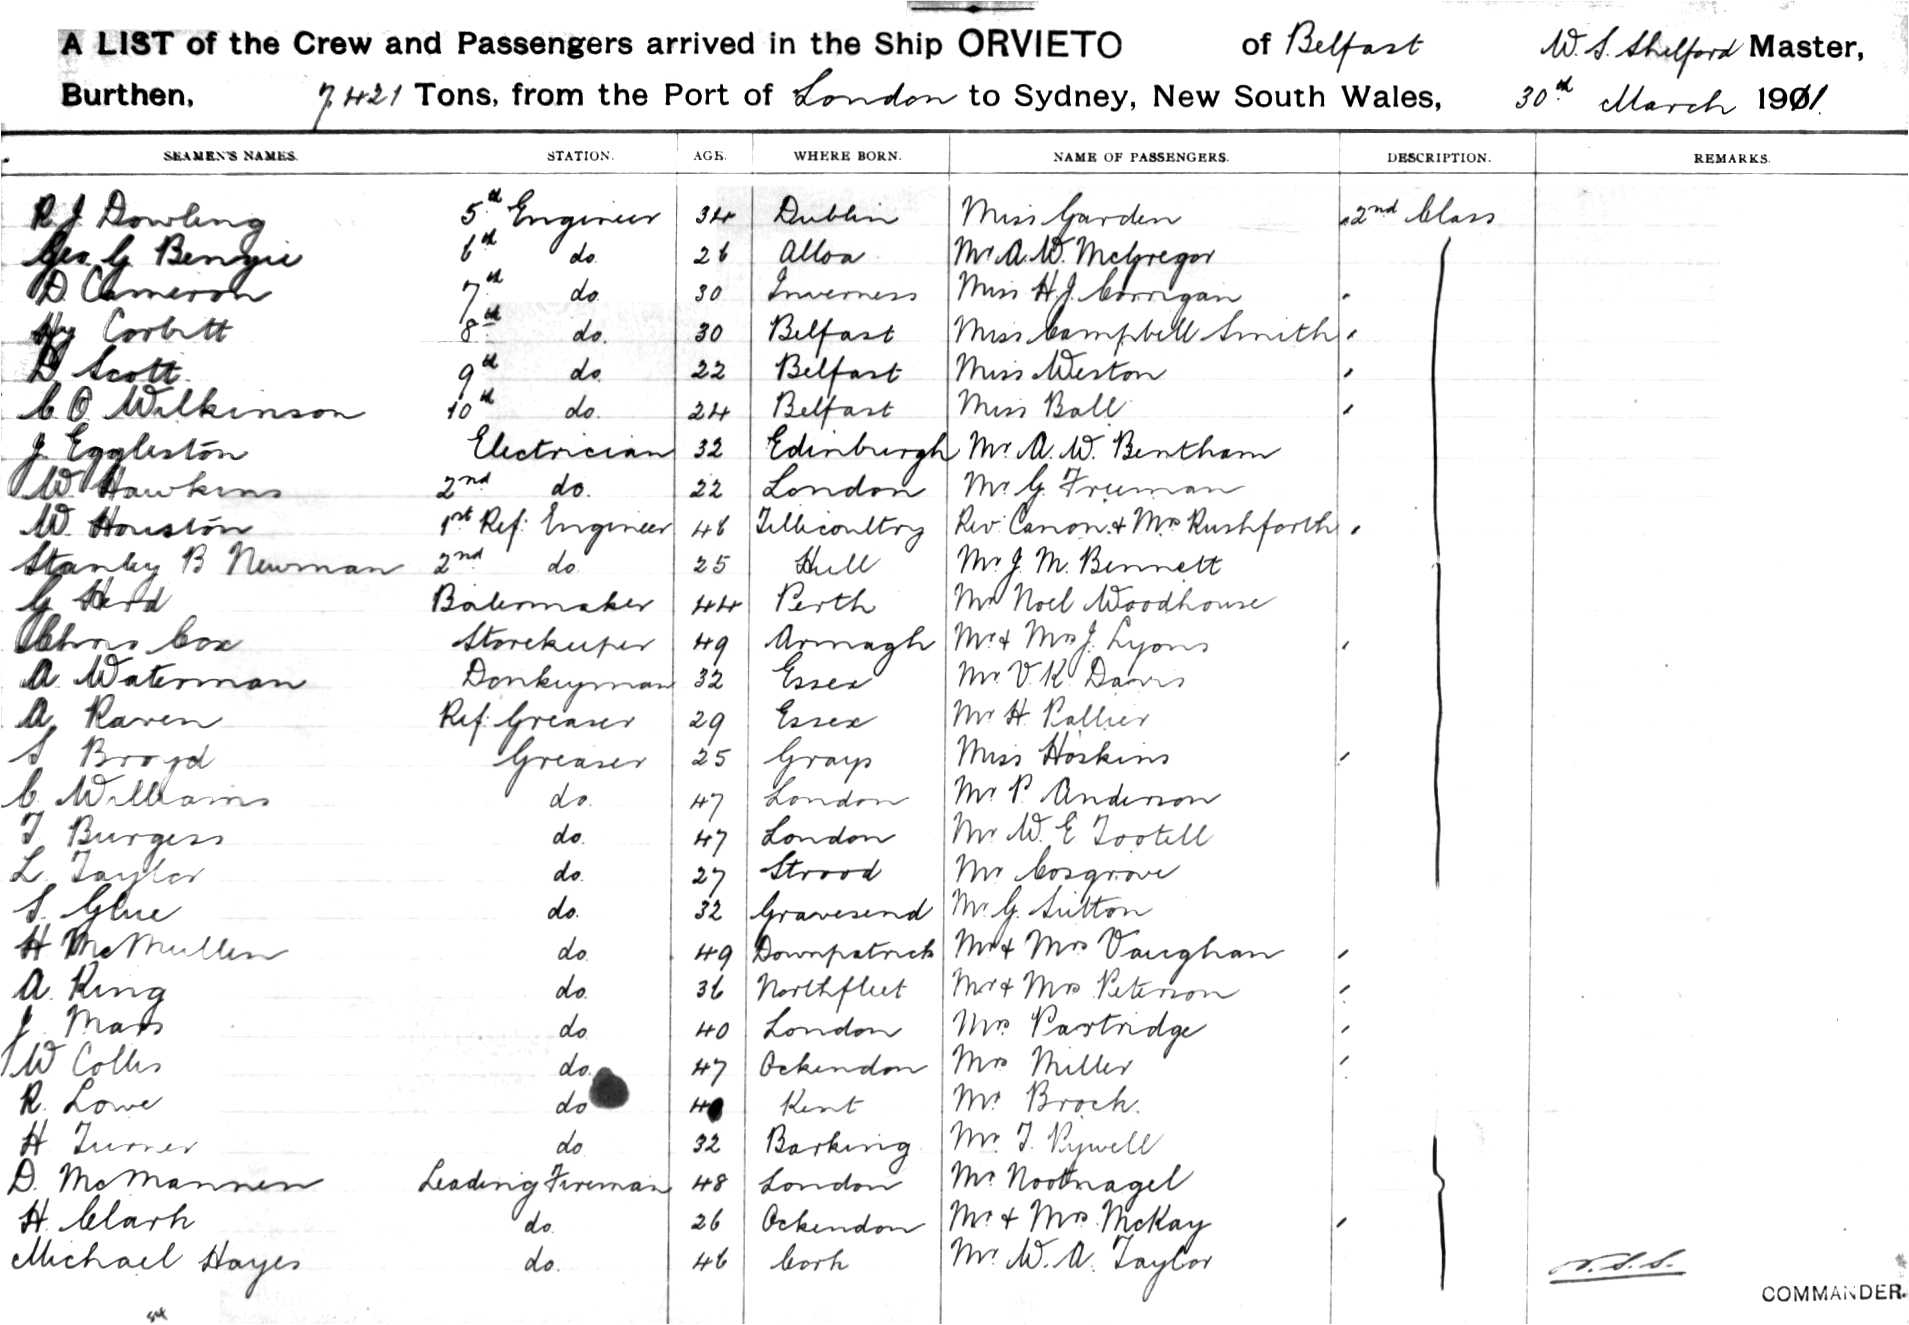 A LIST of the Crew and Passengers arrived in the Ship ORVIETO of Belfast W. S. Shelford Master,
Burthen, 7421 Tons, from the Port of London to Sydney, New South Wales, 30th March 1901.
SEAMEN'S NAMES. STATION. AGE. WHERE BORN. NAME OF PASSENGERS. DESCRIPTION. REMARKS.
R J Dowling 5th Engineer 34 Dublin Miss Garden 2nd Class
Geo. G Bengie 6th do. 26 Alloa Mr A. W. McGregor
D. Cameron 7th do. 30 Inverness Miss H. J. Corrigan
Hy Corbitt 8th do. 30 Belfast Miss Campbell Smith
D Scott. 9th do. 22 Belfast Miss Weston
C. O Wilkinson 10th do. 24 Belfast Miss Ball
J. Eggleston Electrician 32 Edinburgh Mr A. W. Bentham
W. Hawkins 2nd do. 22 London Mr G. Freeman
W. Houston 1st Ref: Engineer 46 Tillicoultry Rev: Canon & Mrs Rushforth
Stanley B Newman 2nd do 25 Hull Mr J. M. Bennett
G Herd Boilermaker 44 Perth Mr Noel Woodhouse
Cox Storekeeper 49 Armagh Mr & Mrs J. Lyons
A. Waterman Donkeyman 32 Essex Mr V. K. Davis
A. Raven Ref: Greaser 29 Essex Mr H. Pallier
S Broyd Greaser 25 Grays Miss Hoskins
C. Williams do. 47 London Mr P. Anderson
T Burgess do. 47 London Mr W. E Tootell
L. Taylor do. 27 Strood Mr Cosgrove
S. Glue do. 32 Gravesend Mr G. Sutton
H McMullen do. 49 Downpatrick Mr & Mrs Vaughan
A. King do. 36 Northfleet Mr & Mrs Peterson
J. do 40 London Mrs Partridge
W Colles do. 47 Ockendon Mrs Miller
R. Lowe do Kent Mr Brock.
H Turner do 32 Barking Mr T. Pywell
D. McMannen Leading Fireman 48 London Mr Nootnagel
H. Clark do. 26 Ockendon Mr & Mrs McKay
Michael Hayes do. 46 Cork Mr W. A. Taylor
COMMANDER.